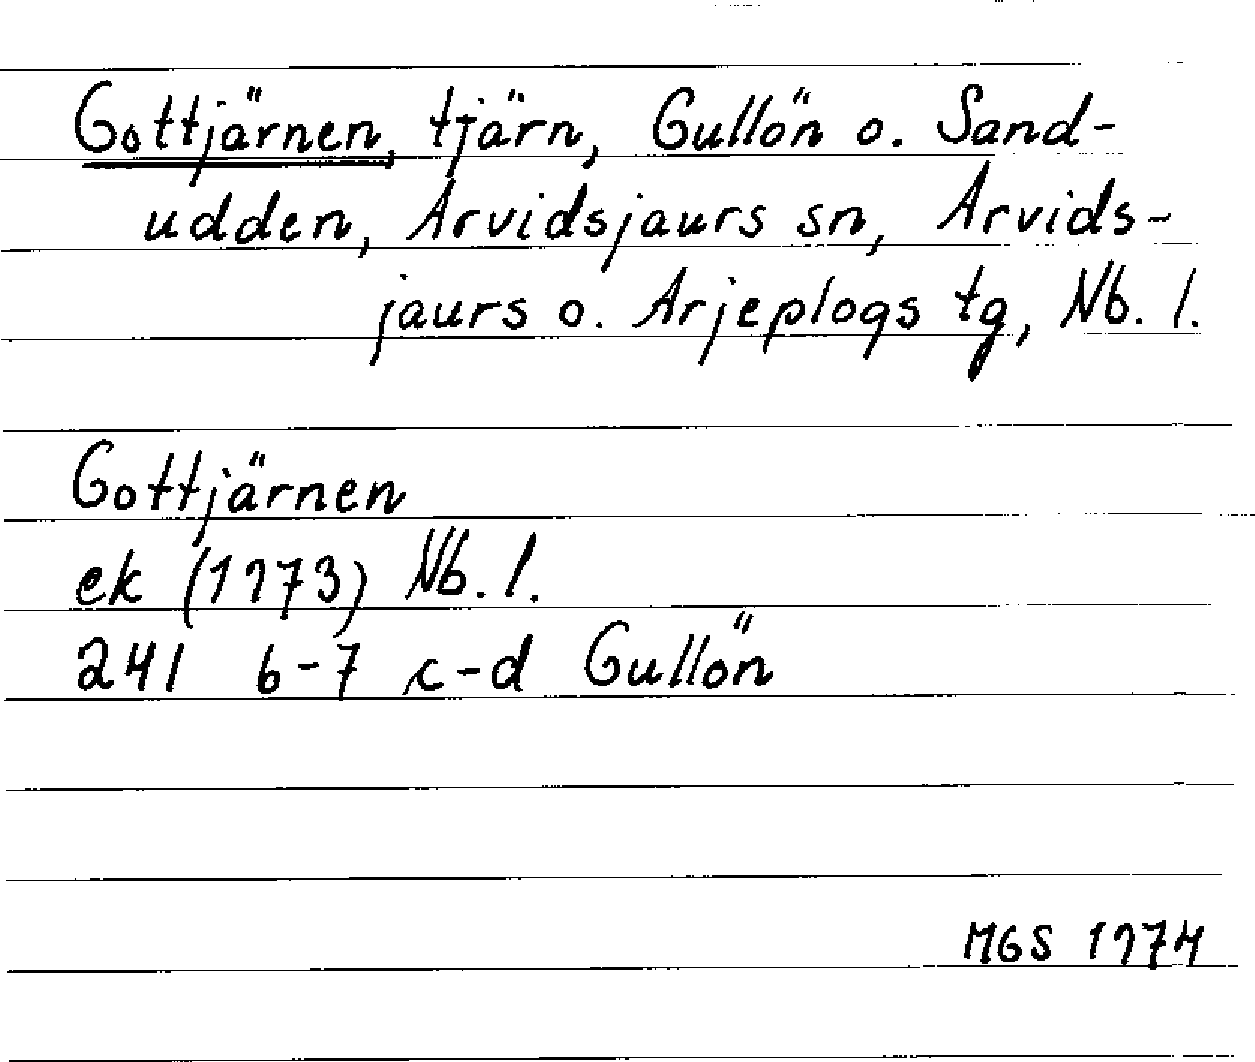 Gottjärnen, tjärn, Gullön o. Sand-
udden, Arvidsjaurs sn, Arvids-
jaurs o. Arjeplogs tg, Nb. l.
Gottjärnen
ek (1973) Nb. l.
241 6-7 c-d Gullön
MGS 1974